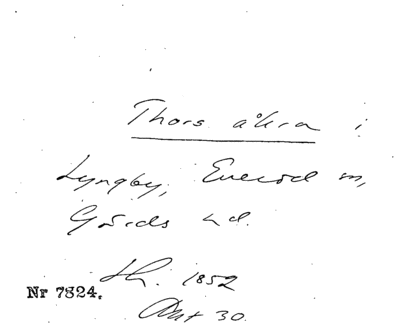 Thors åkra i
Lyngby, Everöd sn,
Gärds hd.
1852
Nr 7824.
Akt 30.